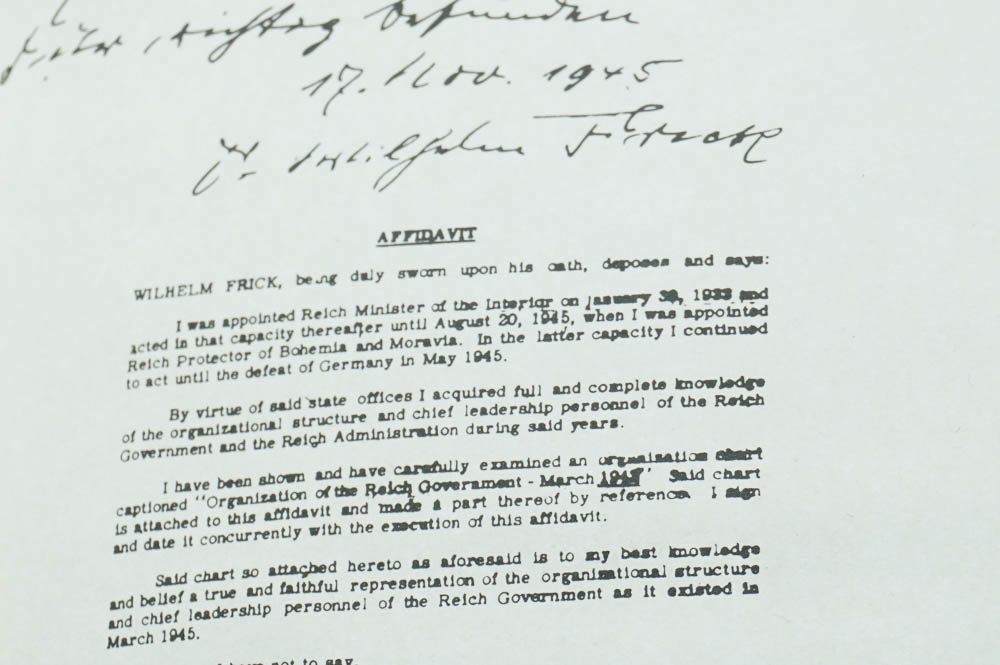 Für richtig befunden
17. Nov. 1945
Wilhelm Frick
AFFIDAVIT
WILHELM FRICK, being duly sworn upon his oath, deposes and says:
I was appointed Reich Minister of the Interior on January 30, 1933 and
acted in that capacity thereafter until August 20, 1945, when I was appointed
Reich Protector of Bohemia and Moravia. In the latter capacity I continued
to act until the defeat of Germany in May 1945.
By virtue of said state offices I acquired full and complete knowledge
of the organizational structure and chief leadership personnel of the Reich
Government and the Reich Administration during said years.
I have been shown and have carefully examined an organization chart
captioned "Organization of the Reich Government - March 1945" Said chart
is attached to this affidavit and made a part thereof by reference. I sign
and date it concurrently with the execution of this affidavit.
Said chart so attached hereto as aforesaid is to my best knowledge
and belief a true and faithful representation of the organizational structure
and chief leadership personnel of the Reich Government as it existed in
March 1945.
not to say,